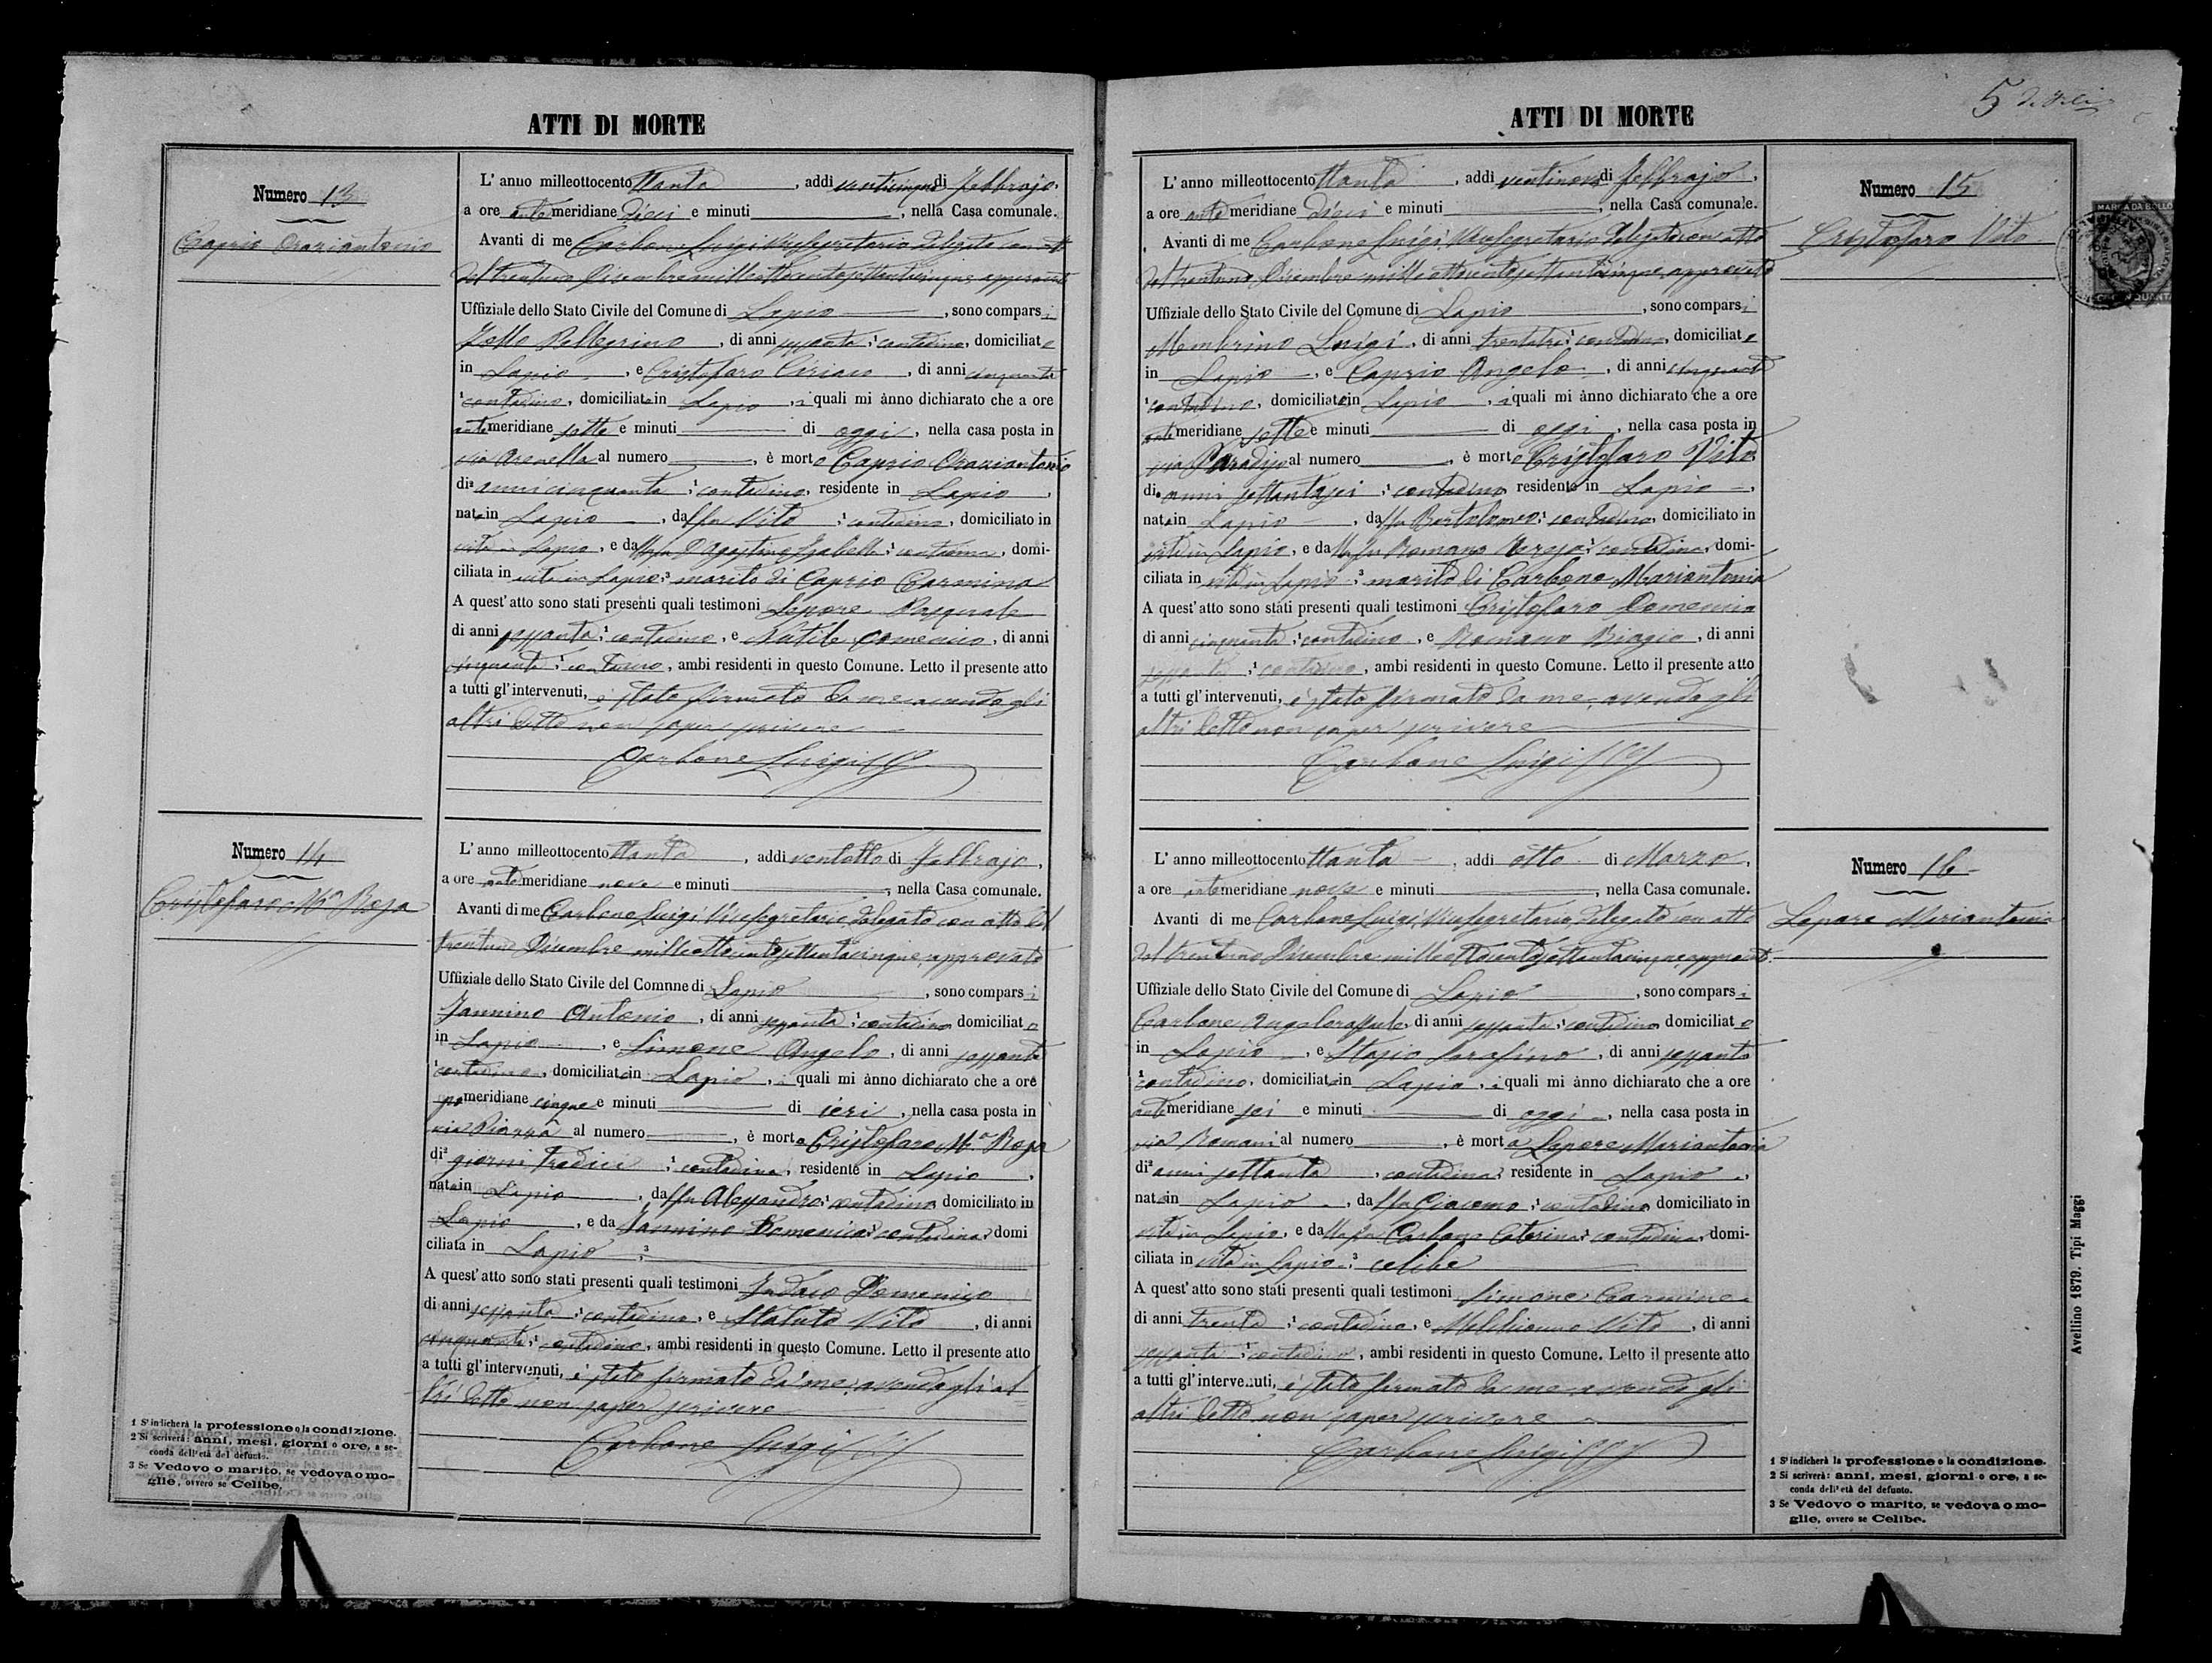 ATTI DI MORTE
Numero 13
Caprio Oraziantonio
L' anno milleottocento ttanta , addi venticinque di Febbrajo,
a ore ante meridiane dieci e minuti , nella Casa comunale.
Avanti di me Carbone Luigi Vicesegretario delegato con atto
del trentuno Dicembre milleottocentosettantacinque, approvato
Uffiziale dello Stato Civile del Comune di Lapio , sono comparsi
Pellegrino , di anni sessanta ;¹ contadino, domiciliato
in Lapio , e Cristofaro Ciriaco , di anni cinquanta
¹contadino, domiciliato in Lapio , i quali mi ànno dichiarato che a ore
antemeridiane sette e minuti di oggi , nella casa posta in
via Arenella al numero , è morto Caprio Oraziantonio
di² anni cinquanta ;¹ contadino, residente in Lapio ,
nato in Lapio , da fu Vito ;¹ contadino, domiciliato in
vita in Lapio, e da fu D'Agostino Isabella ;¹ contadina, domi-
ciliata in vita in Lapio;³ marito di Caprio Carmina
A quest' atto sono stati presenti quali testimoni Lepore Pasquale
di anni sessanta ;¹ contadino, e Natile Domenico, di anni
cinquanta ;¹ contadino, ambi residenti in questo Comune. Letto il presente atto
a tutti gl' intervenuti, è stato firmato da me avendo gli
altri detto non saper scrivere
Carbone Luigi
Numero 14
Cristofaro Mª Rosa
L' anno milleottocento ttanta , addi ventotto di Febbrajo,
a ore antemeridiane nove e minuti , nella Casa comunale.
Avanti di me Carbone Luigi Vicesegretario, delegato con atto del
trentuno Dicembre milleottocentosettantacinque, approvato
Uffiziale dello Stato Civile del Comnne di Lapio , sono comparsi
Jannino Antonio , di anni sessanta ;¹ contadino domiciliato
in Lapio , e Simone Angelo , di anni sessanta
¹contadino, domiciliato in Lapio , i quali mi ànno dichiarato che a ore
pomeridiane cinque e minuti di ieri , nella casa posta in
via Piazza al numero , è morta Cristofaro Mª Rosa
di² giorni tredici ;¹ contadina, residente in Lapio ,
nata in Lapio , da fu Alessandro ;¹ contadino domiciliato in
Lapio , e da Jannino Domenica ;¹ contadina, domi
ciliata in Lapio ;³
A quest' atto sono stati presenti quali testimoni Domenico
di anni sessanta ;¹ contadino, e Statuto Vito , di anni
cinquanta ;¹ contadino, ambi residenti in questo Comune. Letto il presente atto
a tutti gl' intervenuti, è stato firmato da me avendo gli al
tri detto non saper scrivere
Carbone Luigi
1 S' indicherà la professione o la condizione.
2 Si scriverà: anni, mesi, giorni o ore, a se-
conda dell' età del defunto.
3 Se Vedovo o marito, se vedova o mo-
glie, ovvero se Celibe.
5
ATTI DI MORTE
MARCA DA BOLLO
Numero 15
Cristofaro Vito
L' anno milleottocento ttanta , addi ventinove di Febbrajo,
a ore antemeridiane dieci e minuti , nella Casa comunale.
Avanti di me Carbone Luigi Vicesegretario delegato con atto
del trentuno Dicembre milleottocentosettantacinque, approvato
Uffiziale dello Stato Civile del Comune di Lapio , sono comparsi
Membrino Luigi , di anni trentatre ;¹ contadino, domiciliato
in Lapio , e Caprio Angelo , di anni cinquanta
¹contadino, domiciliato in Lapio , i quali mi ànno dichiarato che a ore
antemeridiane sette e minuti di oggi , nella casa posta in
via Paradiso al numero , è morto Cristofaro Vito
di² anni settantasei ;¹ contadino residente in Lapio ,
nato in Lapio , da fu Bartolomeo ;¹ contadino, domiciliato in
vita in Lapio, e da fu Romano Teresa ;¹ contadina, domi-
ciliata in vita in Lapio ;³ marito di Carbone Mariantonia
A quest' atto sono stati presenti quali testimoni Cristofaro Domenico
di anni cinquanta ;¹ contadino , e Romano Biagio , di anni
sessanta ;¹ contadino , ambi residenti in questo Comune. Letto il presente atto
a tutti gl' intervenuti, è stato firmato da me, avendo gli
altri detto non saper scrivere
Carbone Luigi
Numero 16
Lepore Mariantonia
L' anno milleottocento ttanta , addi otto di Marzo,
a ore antemeridiane nove e minuti , nella Casa comunale.
Avanti di me Carbone Luigi Vicesegretario delegato con atto
del trentuno Dicembre milleottocentosettantacinque, approvato
Uffiziale dello Stato Civile del Comune di Lapio , sono comparsi
Carbone Angeloraffaele, di anni sessanta ;¹ contadino domiciliato
in Lapio , e Stasio Serafino , di anni sessanta
¹contadino, domiciliato in Lapio , i quali mi ànno dichiarato che a ore
antemeridiane sei e minuti di oggi , nella casa posta in
via Romani al numero , è morta Lepore Mariantonia
di² anni settanta , contadina, residente in Lapio ,
nata in Lapio , da fu Giacomo ;¹ contadino domiciliato in
vita in Lapio, e da fu Carbone Caterina ;¹ contadina, domi-
ciliata in vita in Lapio ;³ celibe
A quest' atto sono stati presenti quali testimoni Simone Carmine
di anni trenta ;¹ contadino, e Melchionno Vito , di anni
sessanta ;¹ contadino , ambi residenti in questo Comune. Letto il presente atto
a tutti gl' intervenuti, è stato firmato da me avendo gli
altri detto non saper scrivere
Carbone Luigi
1 S' indicherà la professione o la condizione.
2 Si scriverà: anni, mesi, giorni o ore, a se-
conda dell' età del defunto.
3 Se Vedovo o marito, se vedova o mo-
glie, ovvero se Celibe.
Avellino 1879. Tipi Maggi